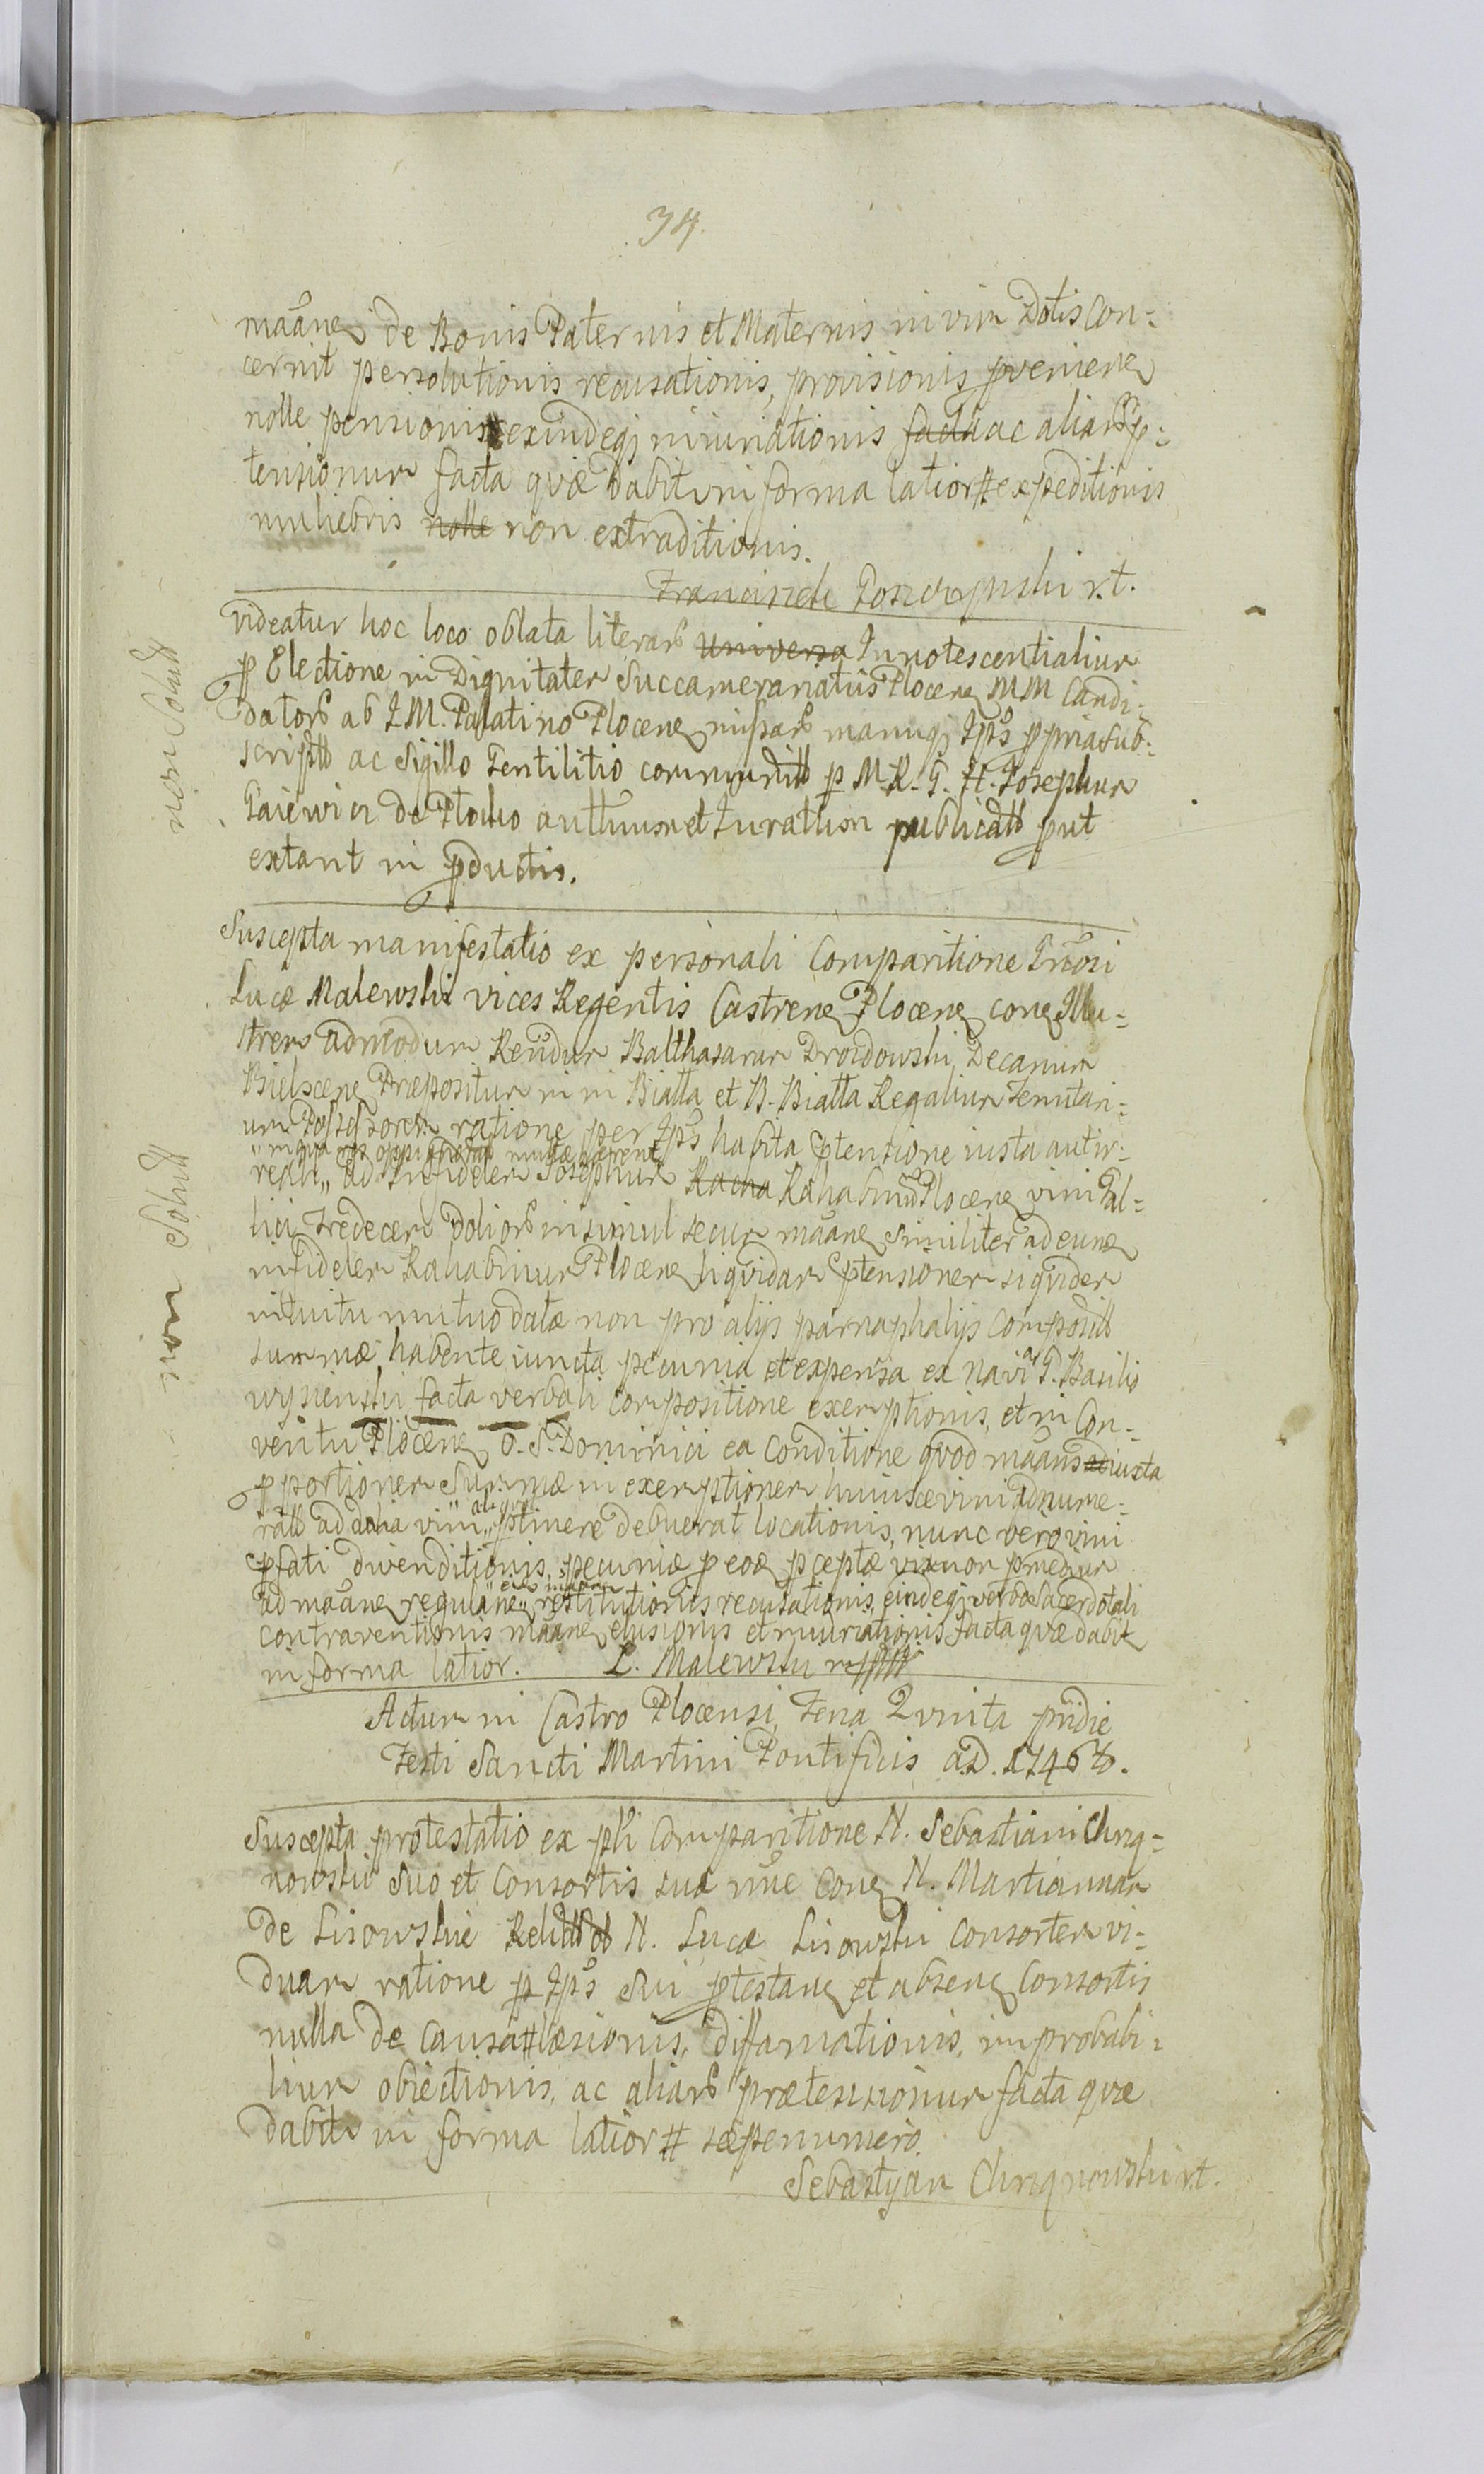 34.
maãne de Bonis Paternis et Maternis in vim Dotis Con-
cernit persolutionis recusationis, provisionis pveniene
nolle pensionis exindeq iniuriationis facta ac aliar p-
tensionum facta quæ dabit in forma latior# expeditionis
muliebris nolle non extraditionis.
Franciszek r.t.
Videatur hoc loco oblata literar universa Innotescentialium
p Electione in Dignitatem Succamerariatus Plocene MM Candi-
dator ab I M. Palatino Plocene manuq Ips ppria sub-
script ac Sigillo Gentilitio communit p M. R. G. H. Josephum
Gaiewicz de Plocko authum et Juratum publicat put
extant in pductis.
non Solvit
Suscepta manifestatio ex personali Comparitione Gnosi
Lucæ Malewski vices Regentis Castrene Plocene cone Illu-
strem admodum Rendum Balthasarum Drozdowski Decanum
Bielscene Præpositum in Biała et B. Biała Regalium Tenutari-
um Possessorem ratione per Ips habita ptensione iusta autir-
reali „ ad Infidelem Josephum Racha Rahabinum Plocene vini Gal-
„ in qua oppignorat
lici Tredecem Dolior insimul secum maãne similiter ad eune
infidelem Rahabinum Plocene liquidam ptensionem siquidem
intuitu mutuo datæ non pro alijs parnaphalijs Composit
summæ habente iuncta pecunia et expensa ex navi a G. Basilio
facta verbali compositione exemptionis, et in Con-
ventu Plocene O. S. Dominici ea Conditione quod maãns ad iuxta
pportionem Summæ in exemptionem huiusce vini adnume-
rat ad dolia vini „ ptinere debuerat locationis, nunc vero vini
pfati divenditionis, pecuniæ p eoæ pceptæ vix non
ad maãne regulãne „ restitutionis recusationis, eindeq verbo Sacerdotali
contraventionis maãne elusionis et iniuriationis facta quæ dabit
in forma latior. L. Malewski
non Solvit
Actum in Castro Plocensi, Feria Quinta pridie
Festi Sancti Martini Pontificis a.D. 1746to.
Suscepta protestatio ex pli Comparitione N. Sebastiani Chrzą-
nowski Suo et Consortis suæ nne Cone N. Mariannam
de Lisowskie Relict ol N. Lucæ Lisowski Consortem vi-
duam ratione p Ips Sui ptestane et absene Consortis
nulla de Causa# læsionis, diffamationis, improbabi-
lium obiectionis, ac aliar prætensionum facta quæ
dabit in forma latior# sæpenumero.
Sebastyan Chrząnowski r.t.